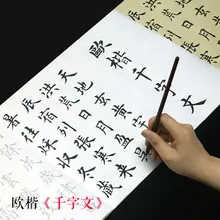 歐楷千字文
天地玄黃宇
洪荒日月盈昃
辰宿列張寒來
暑往秋收冬藏
欧楷《千字文》